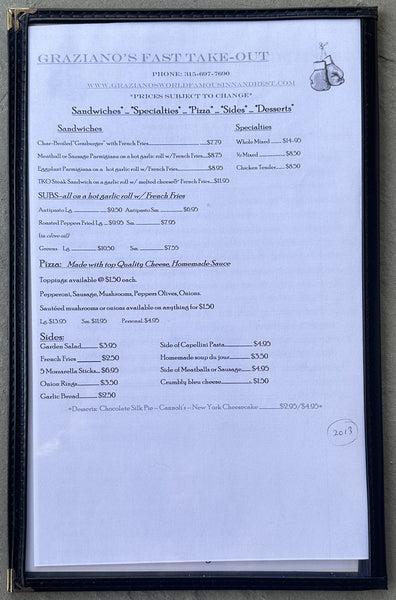 GRAZIANO'S FAST TAKE-OUT
PHONE: 315-697-7690
WWW.GRAZIANOSWORLDFAMOUSINNANDREST.COM
*PRICES SUBJECT TO CHANGE*
Sandwiches* ... *Specialties* ... *Pizza* ... *Sides* ... *Desserts*
Sandwiches
Char-Broiled "Grazburger" with French Fries $7.79
Meatball or Sausage Parmigiana on a hot garlic roll w/French Fries $8.75
Eggplant Parmigiana on a hot garlic roll w/French Fries $8.95
TKO Steak Sandwich on a garlic roll w/ melted cheese& French Fries $11.95
Specialties
Whole Mixed $14.95
½ Mixed $8.50
Chicken Tender $8.50
SUBS-all on a hot garlic roll w/ French Fries
Antipasto Lg. $9.50 Antipasto Sm. $6.95
Roasted Peppers Fried Lg. $9.95 Sm. $7.95
Its olive oil!
Greens Lg. $10.50 Sm. $7.55
Pizza: Made with top Quality Cheese, Homemade Sauce
Toppings available @ $1.50 each.
Pepperoni, Sausage, Mushrooms, Peppers Olives, Onions.
Sautéed mushrooms or onions available on anything for $1.50
Lg. $13.95 Sm. $11.95 Personal. $4.95
Sides:
Garden Salad $3.95
French Fries $2.50
5 Mozzarella Sticks $6.95
Onion Rings $3.50
Garlic Bread $2.50
Side of Capellini Pasta $4.95
Homemade soup du jour $3.50
Side of Meatballs or Sausage $4.95
Crumbly bleu cheese $1.50
*Desserts: Chocolate Silk Pie ~ Cannoli's ~ New York Cheesecake $2.95/$4.95*
2013